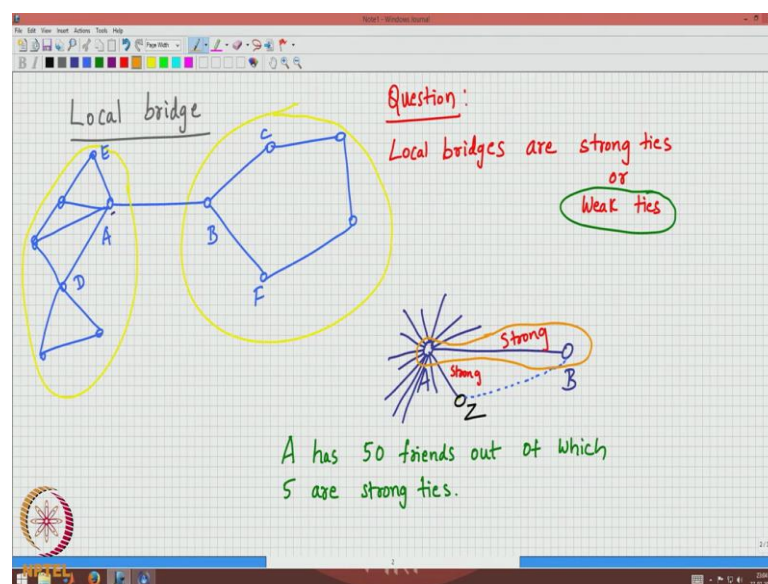 Note1 - Windows Journal
File Edit View Insert Actions Tools Help
Page Width
B I
Local bridge
Question:
Local bridges are strong ties
or
Weak ties
E
C
A
B
D
F
Strong
A
Strong
B
Z
A has 50 friends out of which
5 are strong ties.
NPTEL
2